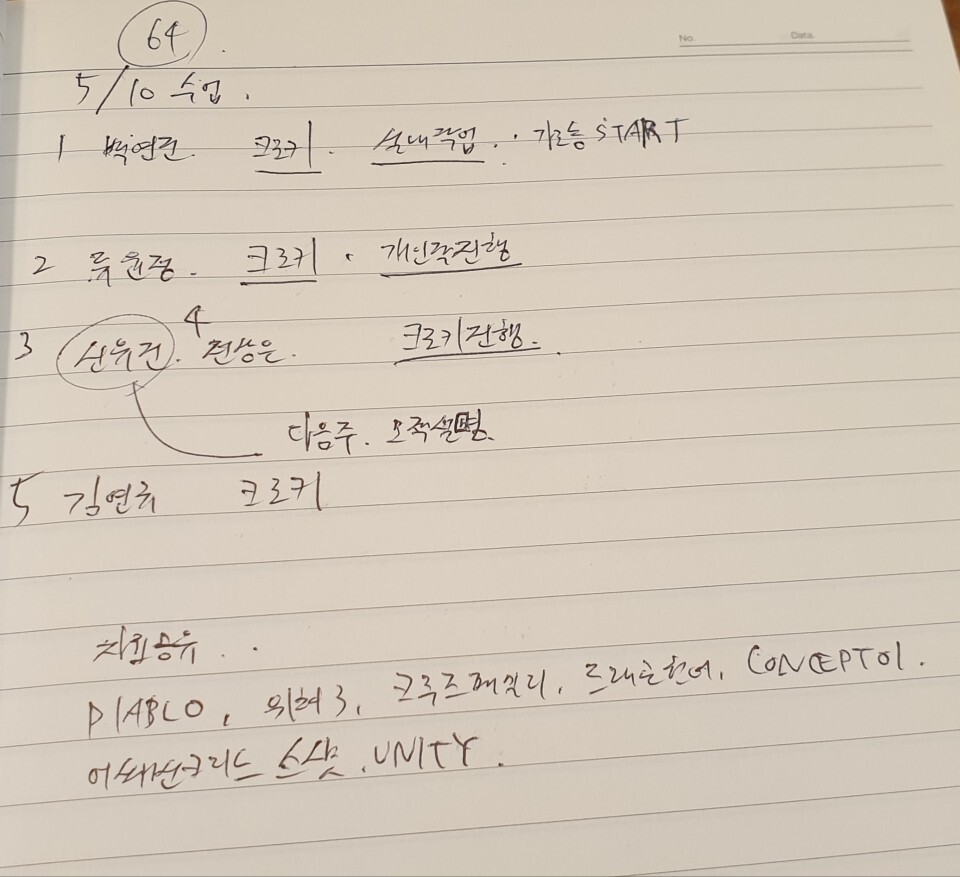 No. Data.
64.
5/10 수업.
1 백연진. 크로키. 실내작업. 가로등 START
2 류윤정. 크로키. 개인작진행
3 신유진. 4 전상은. 크로키진행.
다음주. 오적설명.
5 김연휘 크로키
자료공유..
DIABLO, 위쳐3, 크루즈패밀리, 드래곤헌터, CONCEPT01.
어쌔신크리드 스샷, UNITY.